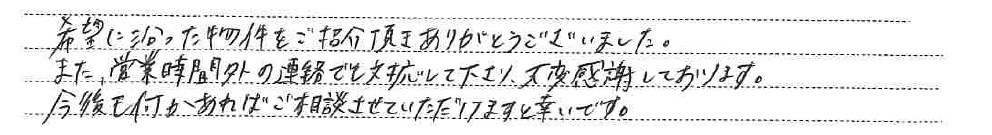 希望に沿った物件をご紹介頂きありがとうございました。
また、営業時間外の連絡でも対応して下さり、大変感謝しております。
今後も何かあればご相談させていただけますと幸いです。